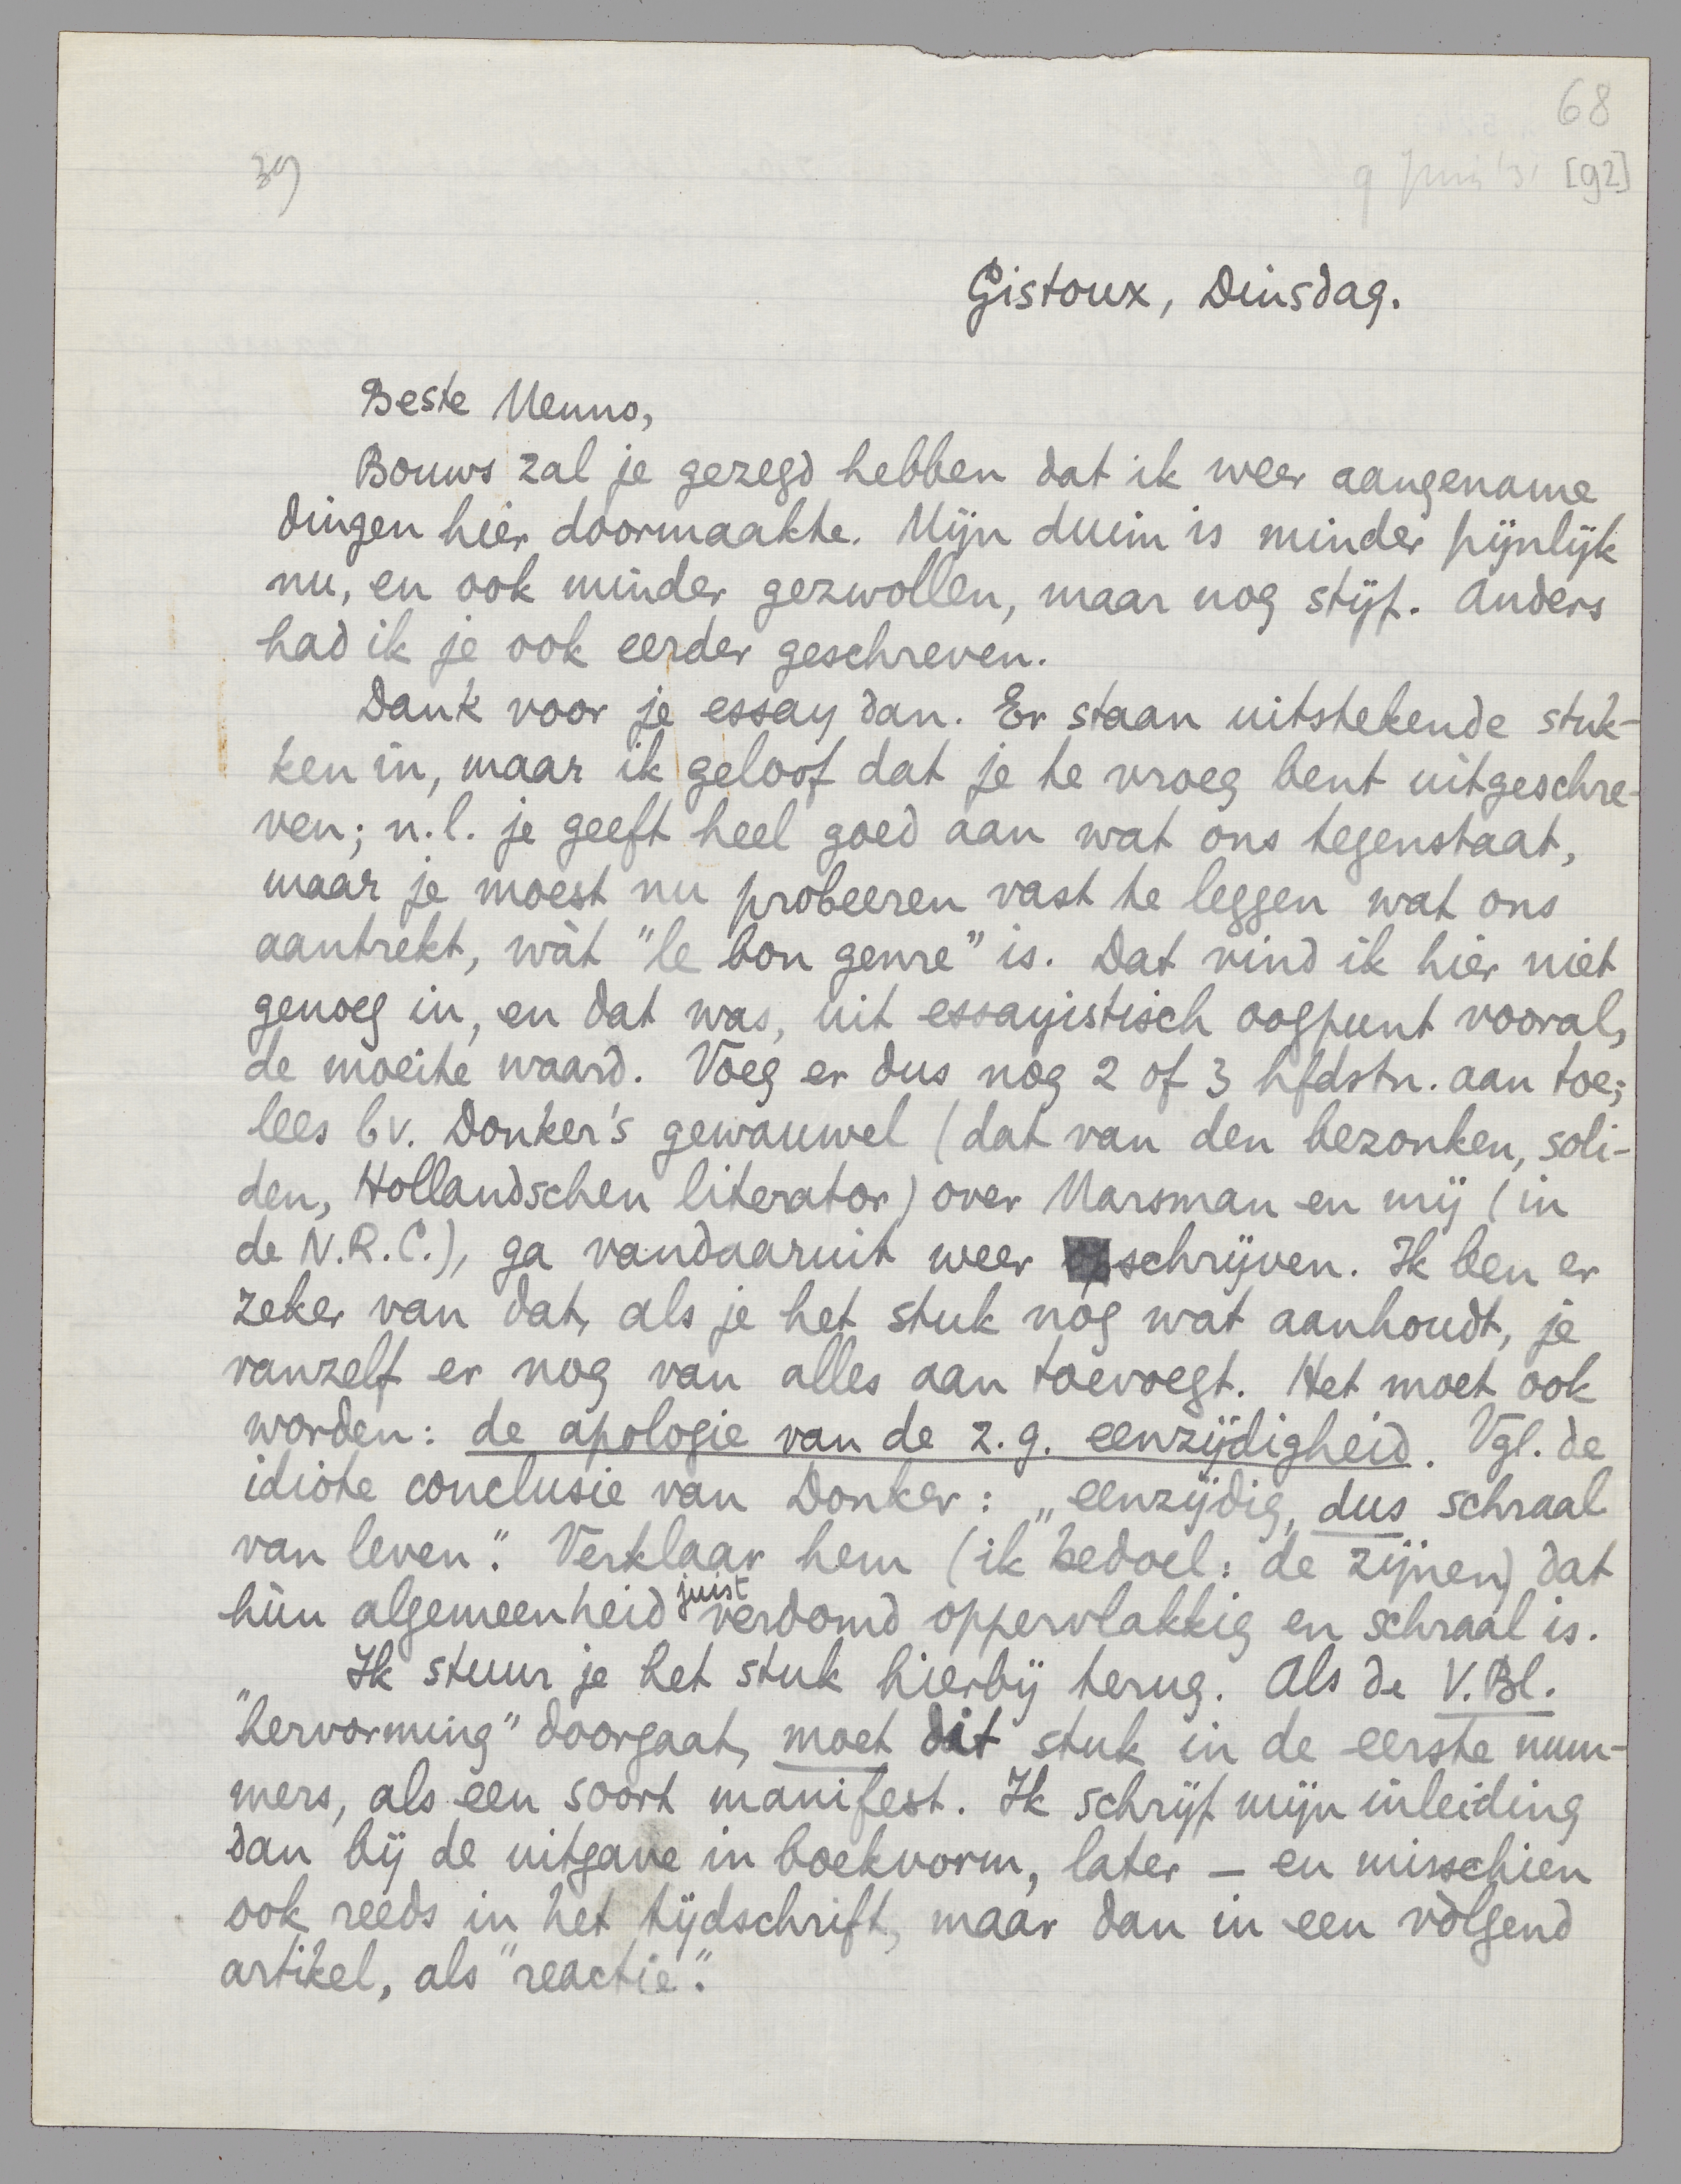 68
39
9 Juni '31 [92]
Gistoux, Dinsdag.
Beste Menno,
Bouws zal je gezegd hebben dat ik weer aangename
dingen hier doormaakte. Mijn duim is minder pijnlijk
nu, en ook minder gezwollen, maar nog stijf. Anders
had ik je ook eerder geschreven.
Dank voor je essay dan. Er staan uitstekende stuk-
ken in, maar ik geloof dat je te vroeg bent uitgeschre-
ven; n.l. je geeft heel goed aan wat ons tegenstaat,
maar je moest nu probeeren vast te leggen wat ons
aantrekt, wàt "le bon genre" is. Dat vind ik hier niet
genoeg in, en dat was, uit essayistisch oogpunt vooral,
de moeite waard. Voeg er dus nog 2 of 3 hfdstn. aan toe;
lees bv. Donker's gewauwel (dat van den bezonken, soli-
den, Hollandschen literator) over Marsman en mij (in
de N.R.C.), ga vandaaruit weer schrijven. Ik ben er
zeker van dat, als je het stuk nóg wat aanhoudt, je
vanzelf er nog van alles aan toevoegt. Het moet ook
worden: de apologie van de z.g. eenzijdigheid. Vgl. de
idiote conclusie van Donker: „eenzijdig, dus schraal
van leven". Verklaar hem (ik bedoel: de zijnen) dat
hùn algemeenheid juist verdomd oppervlakkig en schraal is.
Ik stuur je het stuk hierbij terug. Als de V.Bl.
"hervorming" doorgaat, moet dit stuk in de eerste num-
mers, als een soort manifest. Ik schrijf mijn inleiding
dan bij de uitgave in boekvorm, later – en misschien
ook reeds in het tijdschrift, maar dan in een vòlgend
artikel, als "reactie".